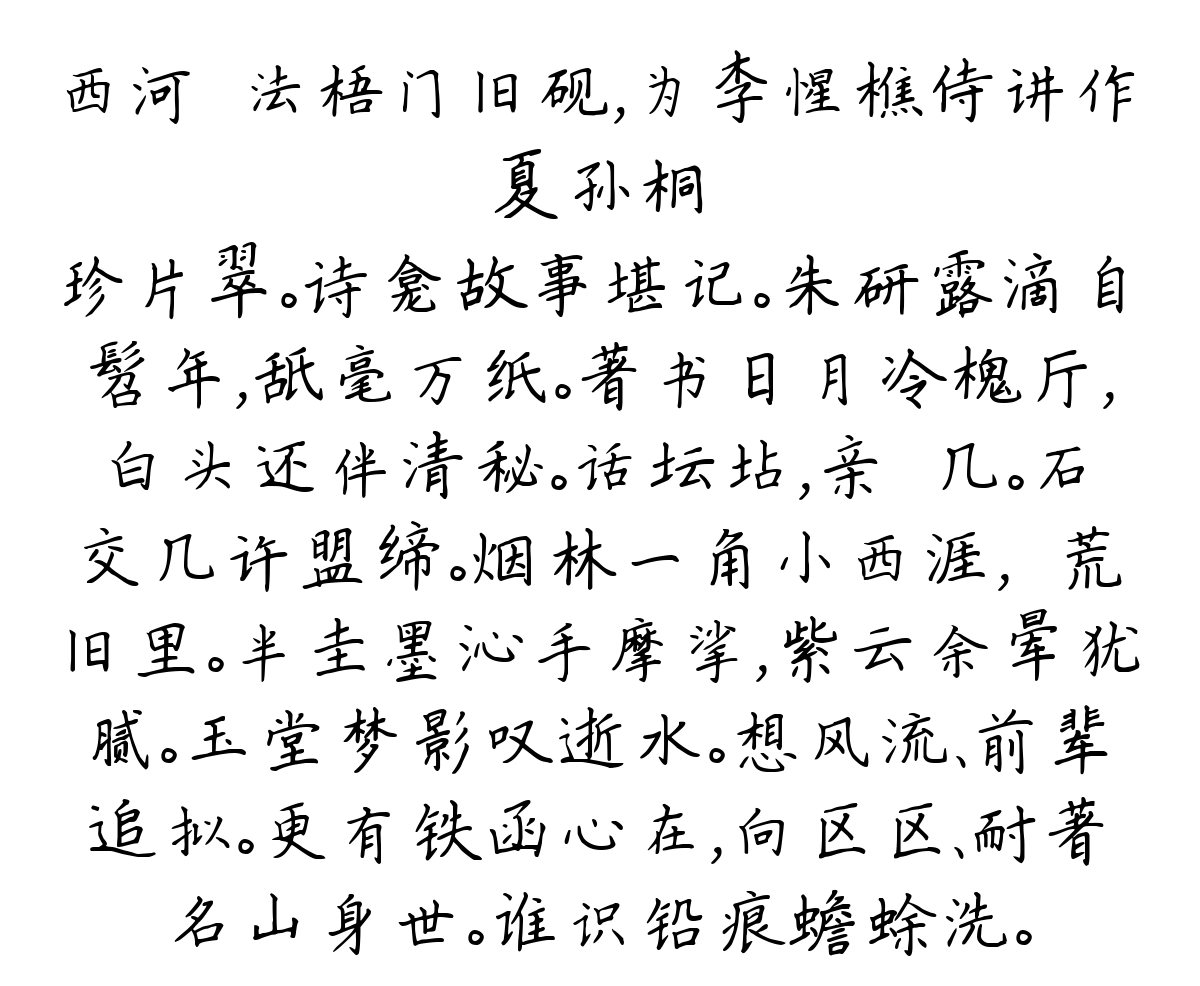 西河　法梧门旧砚,为李惺樵侍讲作
夏孙桐
珍片翠。诗龛故事堪记。朱研露滴自
髫年,舐毫万纸。著书日月冷槐厅,
白头还伴清秘。话坛坫,亲　几。石
交几许盟缔。烟林一角小西涯,荒
旧里。半圭墨沁手摩挲,紫云余晕犹
腻。玉堂梦影叹逝水。想风流、前辈
追拟。更有铁函心在,向区区、耐著
名山身世。谁识铅痕蟾蜍洗。